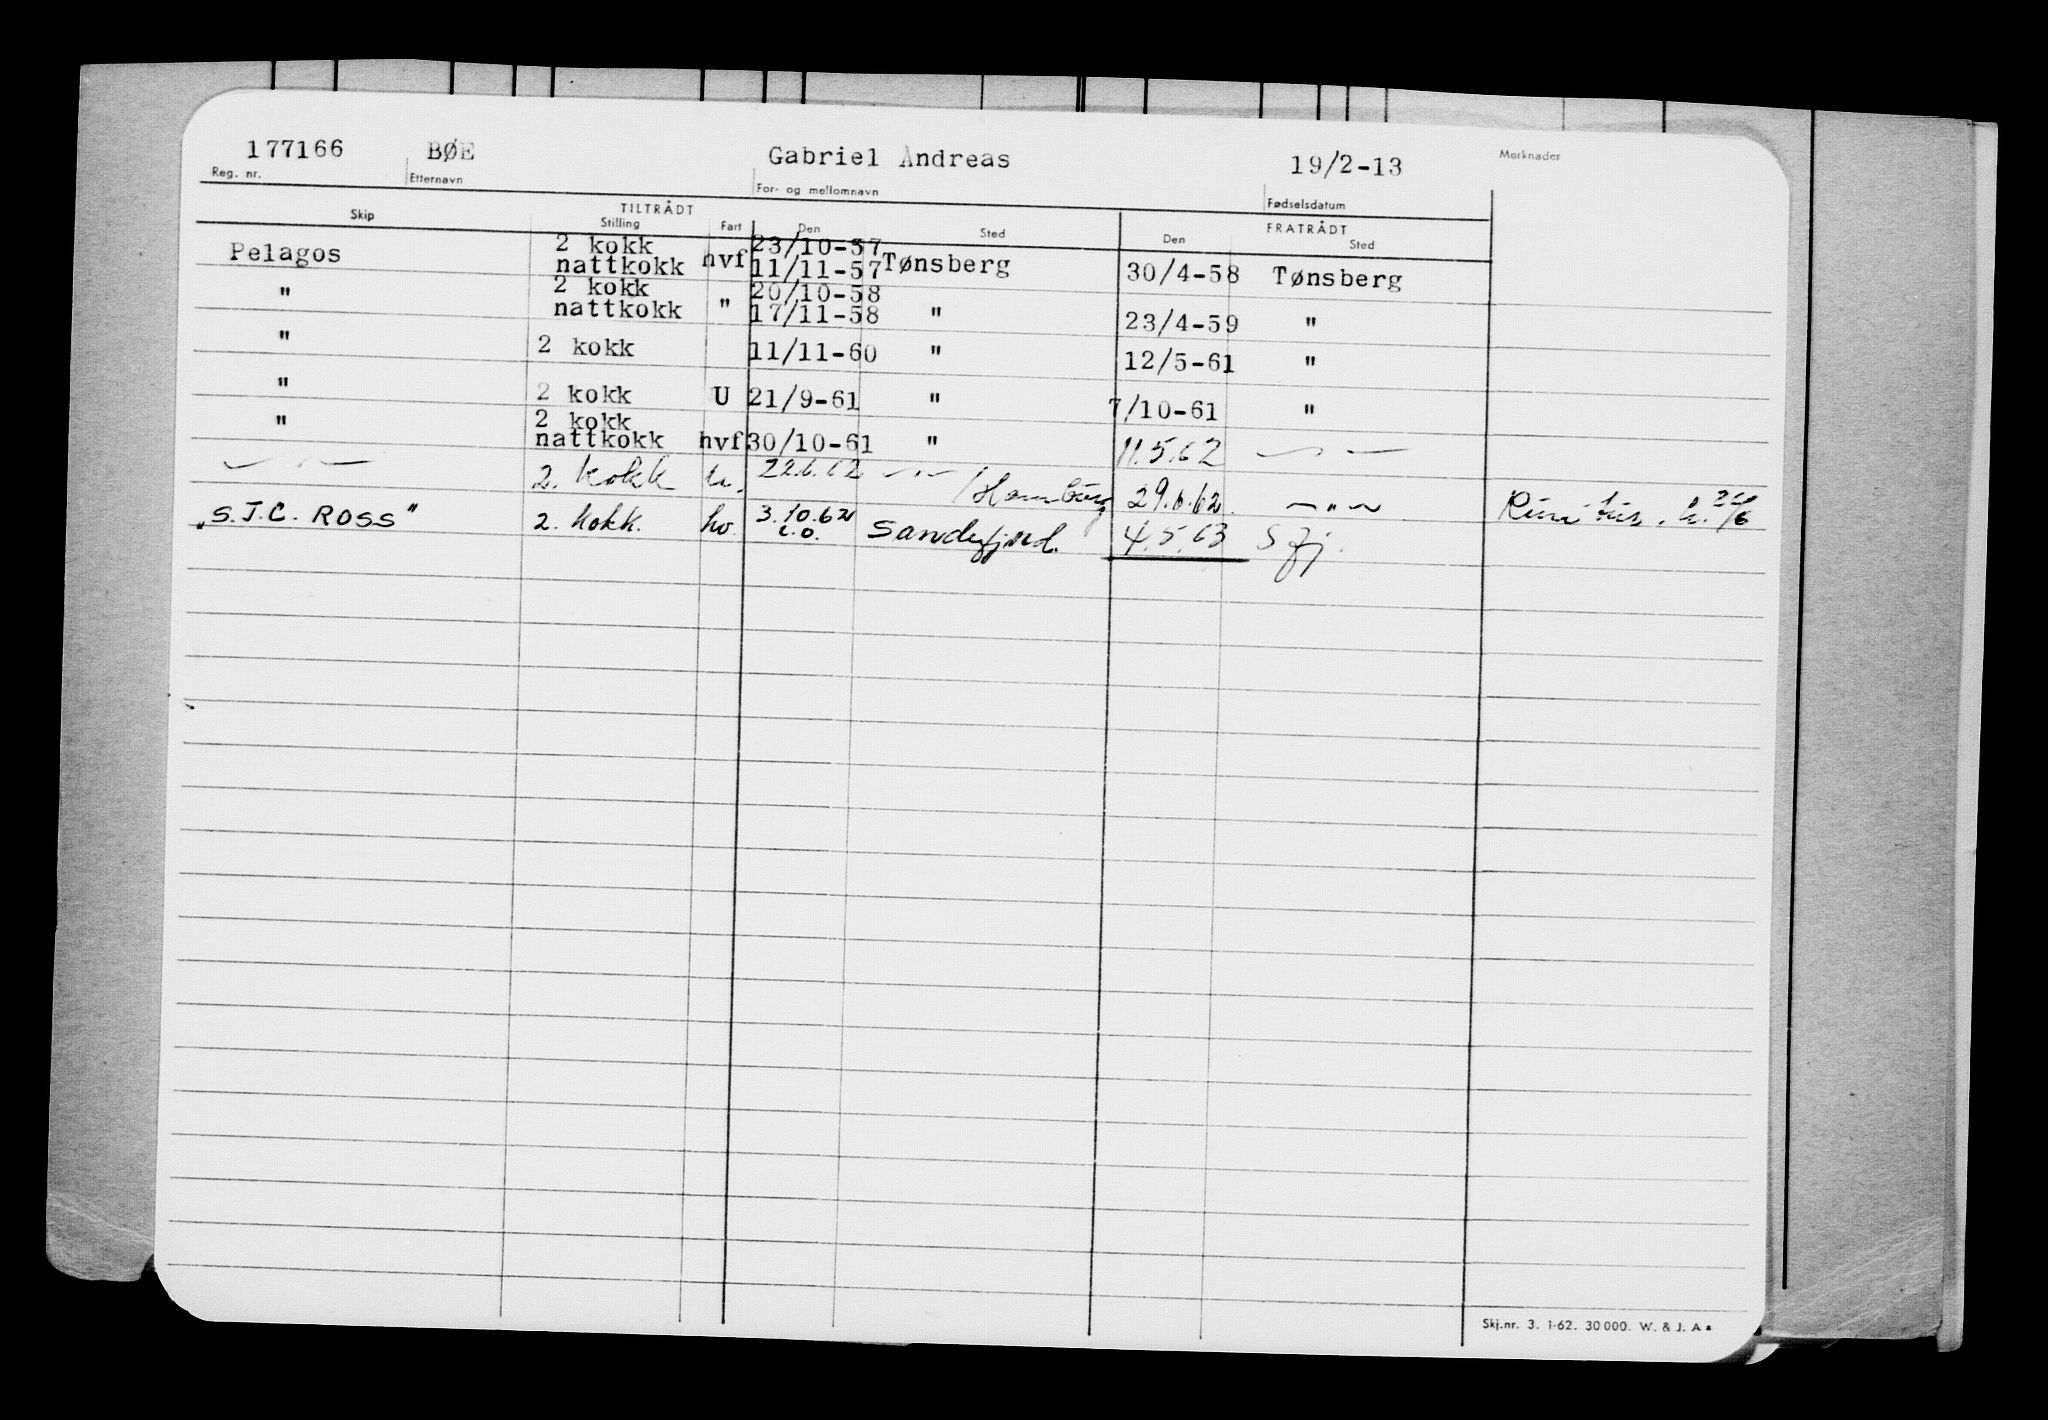 177166 BØE Gabriel Andreas 19/2-13 Merknader
Reg. nr. Etternavn For- og mellomnavn Fødselsdatum
TILTRÅDT FRATRÅDT
Skip Stilling Fart Den Sted Den Sted
Pelagos 2 kokk hvf 23/10-57 Tønsberg 30/4-58 Tønsberg
nattkokk 11/11-57
" 2 kokk 20/10-58
nattkokk " 17/11-58 " 23/4-59 "
" 2 kokk 11/11-60 " 12/5-61 "
" 2 kokk U 21/9-61 " 7/10-61 "
" 2 kokk
nattkokk hvf 30/10-61 " 11.5.62 — " —
— " — 2. kokk u. 22.6.62 — " — / Hamburg 29.6.62. — " — 26/6
"S.J.C. ROSS" 2. kokk. hv. 3.10.62 Sandefjord. 4.5.63 S.fj.
Skj.nr. 3. 1-62. 30 000. W. & J. A